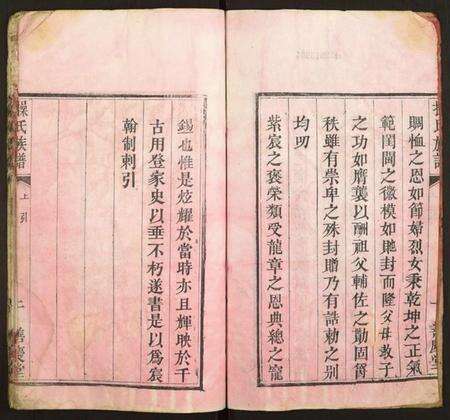 賙恤之恩如節婦烈女秉乾坤之正氣
範閨閫之徽模如貤封而隆父母教子
之功如廕襲以酬祖父輔佐之勛固簪
秩雖有崇卑之殊封贈乃有誥勅之別
均叨
紫宸之褒榮類受龍章之恩典總之寵
錫也惟是炫耀於當時亦且輝映於千
古用登家史以垂不朽遂書是以為宸
翰制刺引
操氏族譜
上引
二
善慶堂